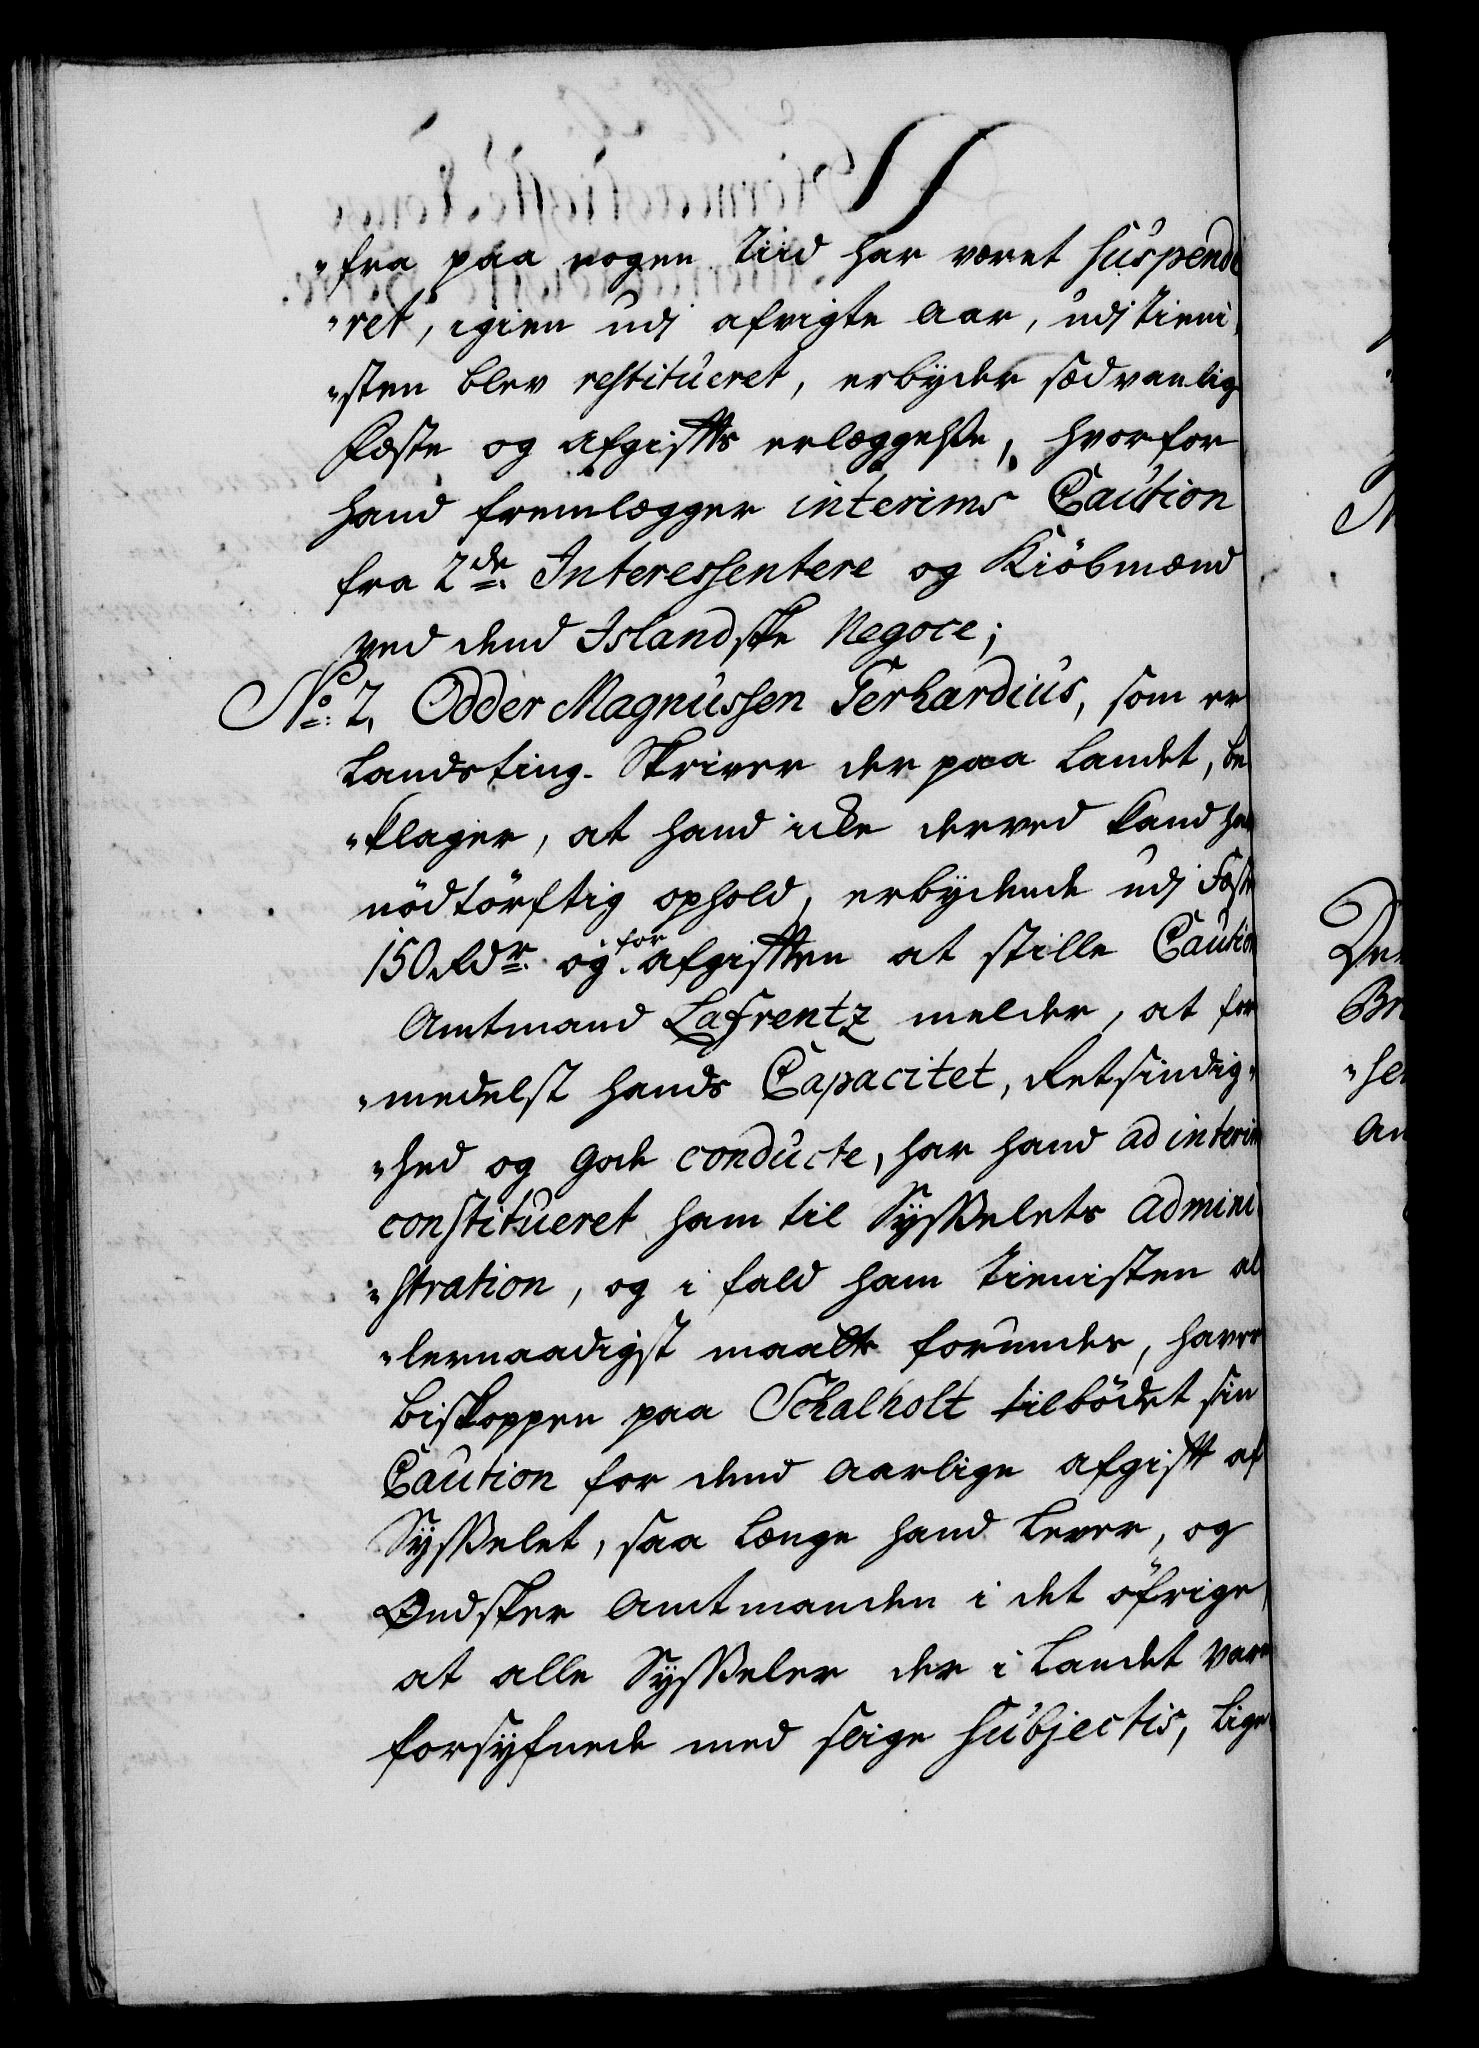 "fra paa nogen Tiid har været suspendi
"ret, igien udj afvigte Aar, udj Tieni
"sten blev restitueret, erbyder sædvanlig
Fæste og Afgiffts erlæggelse, hvorfor
hand fremlægger interims Caution
fra 2de Interessentere og Kiöbmænd
ved dend Islandske Negoce;
No: 2. Odder Magnussen Ferhardius, som er
Landsting-Skriver der paa Landet, be
"klager, at hand icke derved kand have
nödtörftig ophold, erbydende udj Fæste
150 Rdr. og for afgifften at stille Caution
Amtmand Lafrentz melder, at for
"medelst hands Capacitet, Retsindig"
"hed og gode conducte, har hand ad interim
constitueret ham til Sysselets admini
"stration, og i fald ham Tienisten al
"lernaadigst maatte forundes, haver
biskoppen paa Schalholt tilbödet sin
Caution for dend Aarlige afgifft af
Sysselet, saa længe hand lever, og
Ønsker Amtmanden i det öfrige,
at alle Sysseler der i Landet var
forsyfnede med slige Subjectis, lige